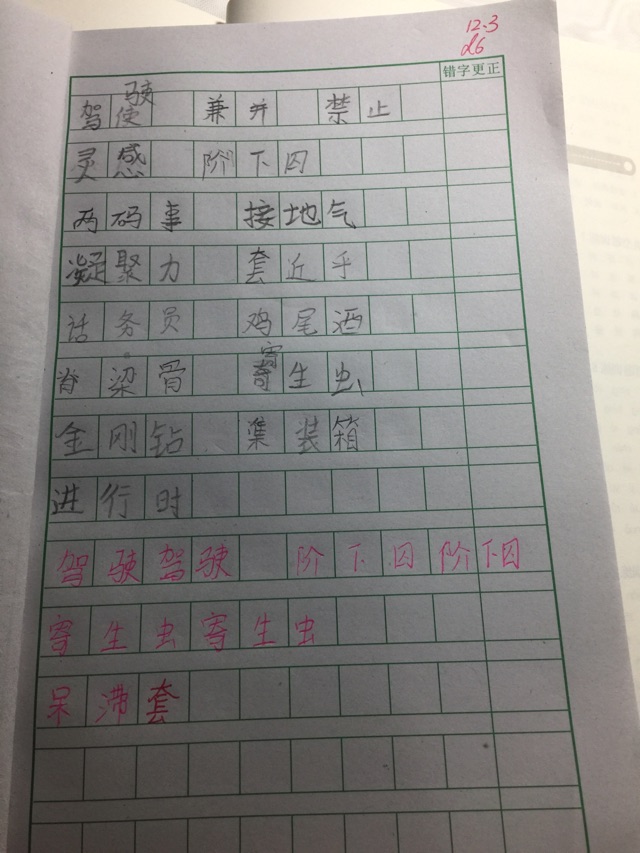 12.3
错字更正
驶
驾使 兼并 禁止
灵感 阶下囚
两码事 接地气
凝聚力 套近乎
话务员 鸡尾酒
寄
脊梁骨 寄生虫
金刚钻 集装箱
进行时
驾驶驾驶 阶下囚阶下囚
寄生虫寄生虫
呆滞套